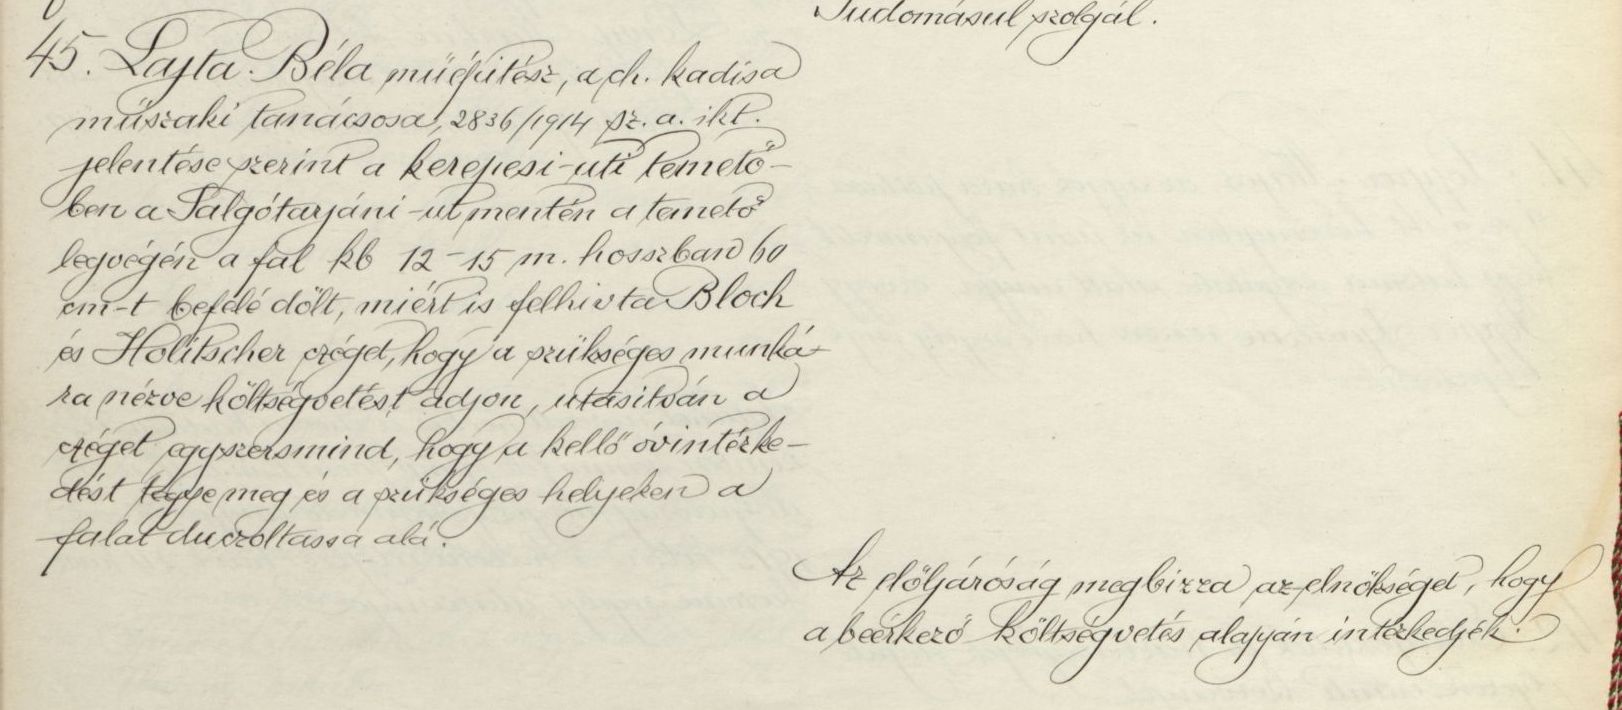 Tudomásul szolgál.
45. Lajta Béla műépitész, a ch. kadisa
műszaki tanácsosa, 2836/1914 sz. a. ikt.
jelentése szerint a kerepesi-uti temető-
ben a Salgótarjáni-ut mentén a temető
legvégén a fal kb 12-15 m. hosszban 60
cm-t befelé dőlt, miért is felhivta Bloch
és Holitscher czéget, hogy a szükséges munká-
ra nézve költségvetést adjon, utasitván a
czéget egyszersmind, hogy a kellő óvintézke-
dést tegye meg és a szükséges helyeken a
falat duczoltassa alá.
Az előljáróság megbizza az elnökséget, hogy
a beérkező költségvetés alapján intézkedjék.